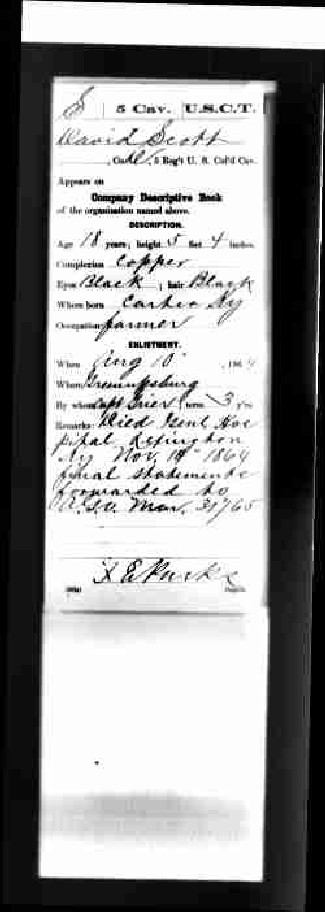 S | 5 Cav. | U.S.C.T.
David Scott
, Co. , 5 Reg't U. S. Col'd Cav.
Appears on
Company Descriptive Book
of the organization named above.
DESCRIPTION.
Age 18 years; height 5 feet 4 inches.
Complexion Copper
Eyes Black ; hair Black
Where born Carter Ky
Occupation farmer
ENLISTMENT.
When Aug 10 , 1864
Where
By whom Capt Grier ; term 3 y'rs.
Remarks: Died Genl Hos
pital Lexington
Ky Nov. 1864
final statements
forwarded to
A.G.O. Mar. 31/65
Parks